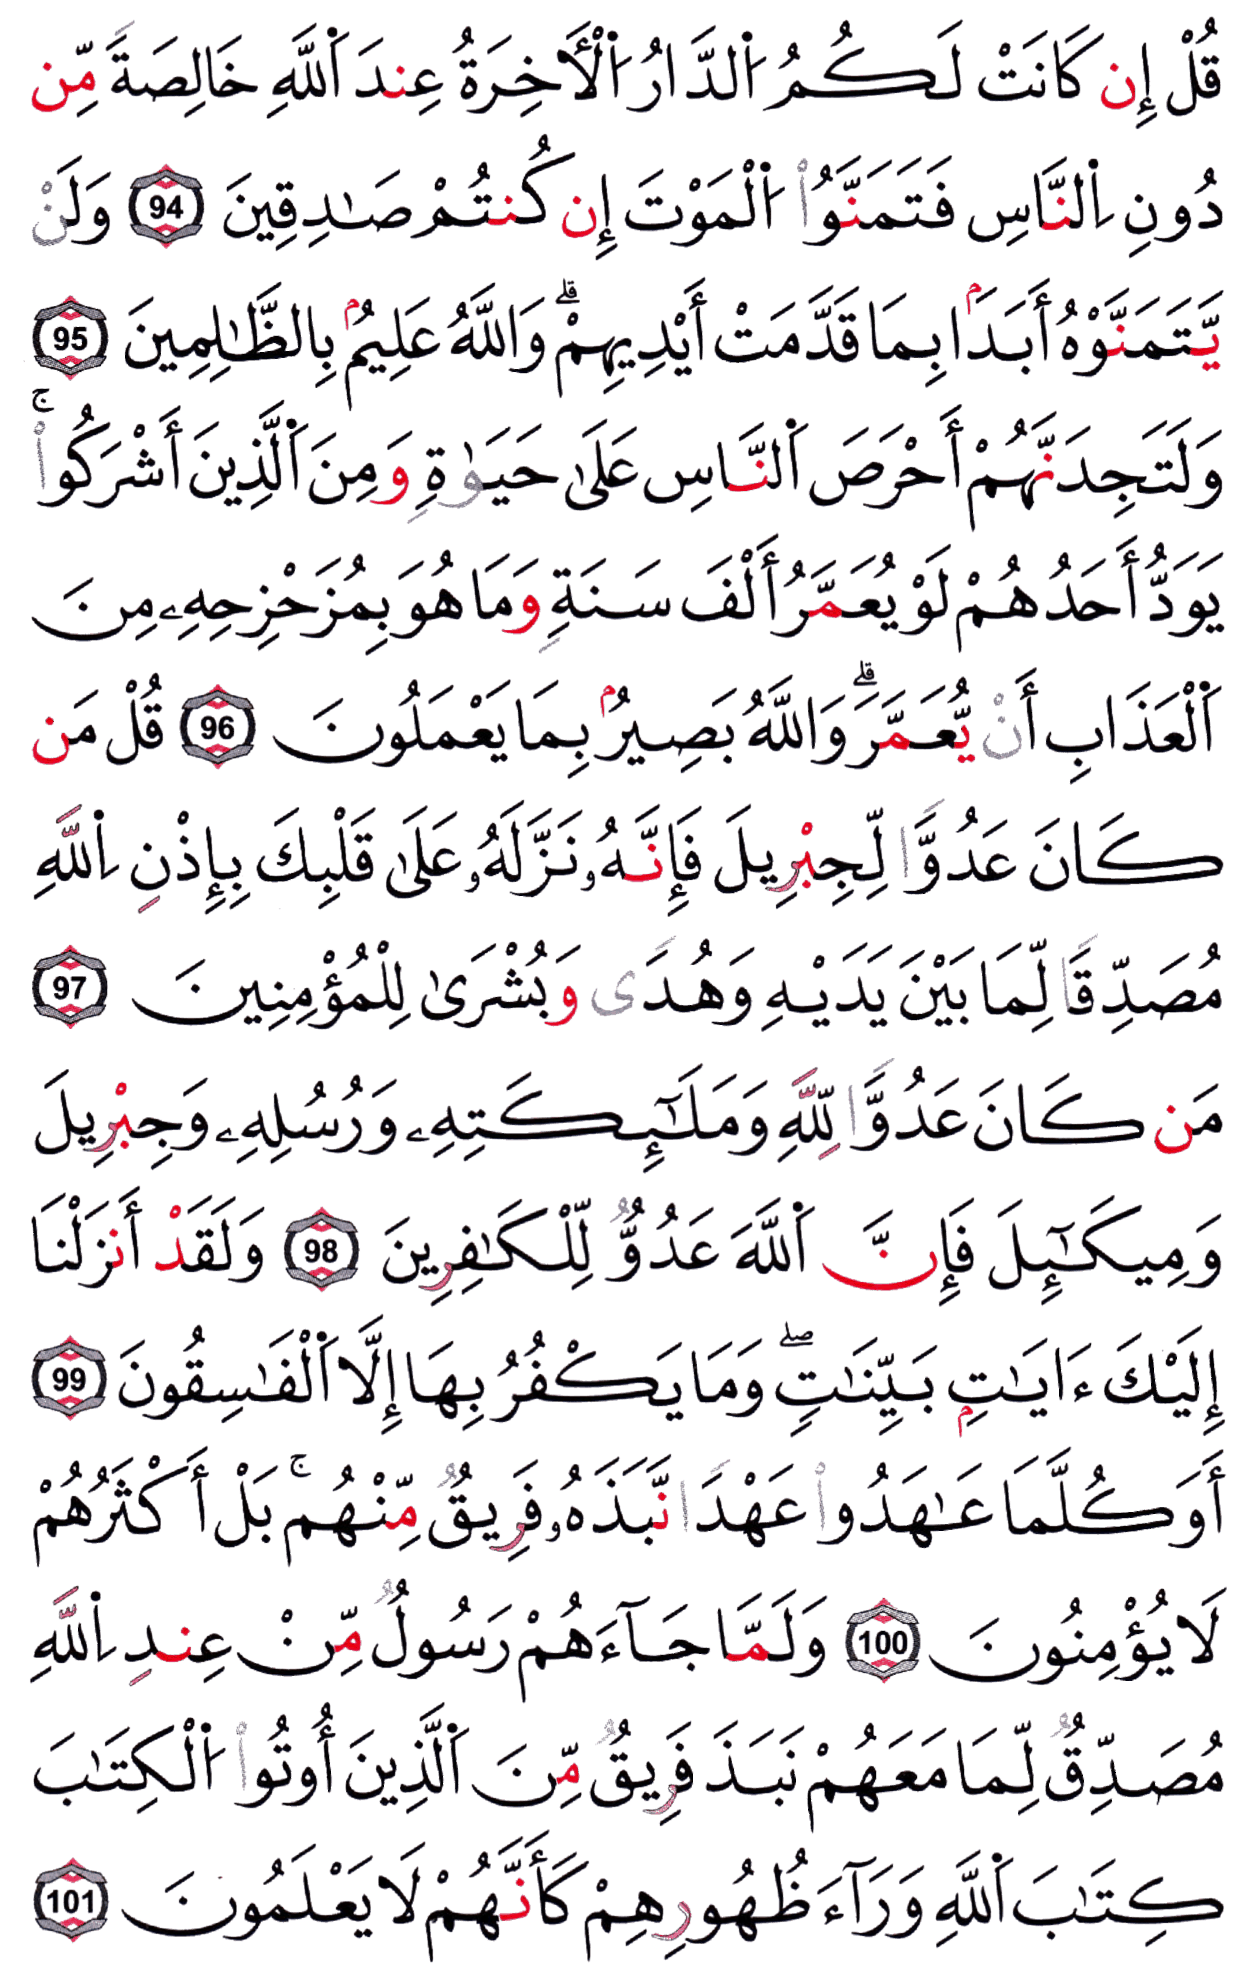 قُلْ إِن كَانَتْ لَكُمُ اُ۬لدَّارُ اُ۬لْأَخِرَةُ عِندَ اَ۬للَّهِ خَالِصَةً مِّن
دُونِ اِ۬لنَّاسِ فَتَمَنَّوُاْ اُ۬لْمَوْتَ إِن كُنتُمْ صَٰدِقِينَ 94 وَلَنْ
يَّتَمَنَّوْهُ أَبَدَاۢ بِمَا قَدَّمَتْ أَيْدِيهِمْۗ وَاللَّهُ عَلِيمُۢ بِالظَّٰلِمِينَ 95
وَلَتَجِدَنَّهُمْ أَحْرَصَ اَ۬لنَّاسِ عَلَىٰ حَيَوٰةٍ وَمِنَ اَ۬لَّذِينَ أَشْرَكُواْۚ
يَوَدُّ أَحَدُهُمْ لَوْ يُعَمَّرُ أَلْفَ سَنَةٍ وَمَا هُوَ بِمُزَحْزِحِهِۦ مِنَ
اَ۬لْعَذَابِ أَنْ يُّعَمَّرَۗ وَاللَّهُ بَصِيرُۢ بِمَا يَعْمَلُونَ 96 قُلْ مَن
كَانَ عَدُوًّا لِّجِبْرِيلَ فَإِنَّهُۥ نَزَّلَهُۥ عَلَىٰ قَلْبِكَ بِإِذْنِ اِ۬للَّهِ
مُصَدِّقًا لِّمَا بَيْنَ يَدَيْهِ وَهُدًى وَبُشْرَىٰ لِلْمُؤْمِنِينَ 97
مَن كَانَ عَدُوًّا لِّلَّهِ وَمَلَٰٓئِكَتِهِۦ وَرُسُلِهِۦ وَجِبْرِيلَ
وَمِيكَٰٓئِلَ فَإِنَّ اَ۬للَّهَ عَدُوٌّ لِّلْكَٰفِرِينَ 98 وَلَقَدْ أَنزَلْنَا
إِلَيْكَ ءَايَٰتِۭ بَيِّنَٰتٍۖ وَمَا يَكْفُرُ بِهَا إِلَّا اَ۬لْفَٰسِقُونَ 99
أَوَكُلَّمَا عَٰهَدُواْ عَهْدًا نَّبَذَهُۥ فَرِيقٌ مِّنْهُمۚ بَلْ أَكْثَرُهُمْ
لَا يُؤْمِنُونَ 100 وَلَمَّا جَآءَهُمْ رَسُولٌ مِّنْ عِندِ اِ۬للَّهِ
مُصَدِّقٌ لِّمَا مَعَهُمْ نَبَذَ فَرِيقٌ مِّنَ اَ۬لَّذِينَ أُوتُواْ اُ۬لْكِتَٰبَ
كِتَٰبَ اَ۬للَّهِ وَرَآءَ ظُهُورِهِمْ كَأَنَّهُمْ لَا يَعْلَمُونَ 101